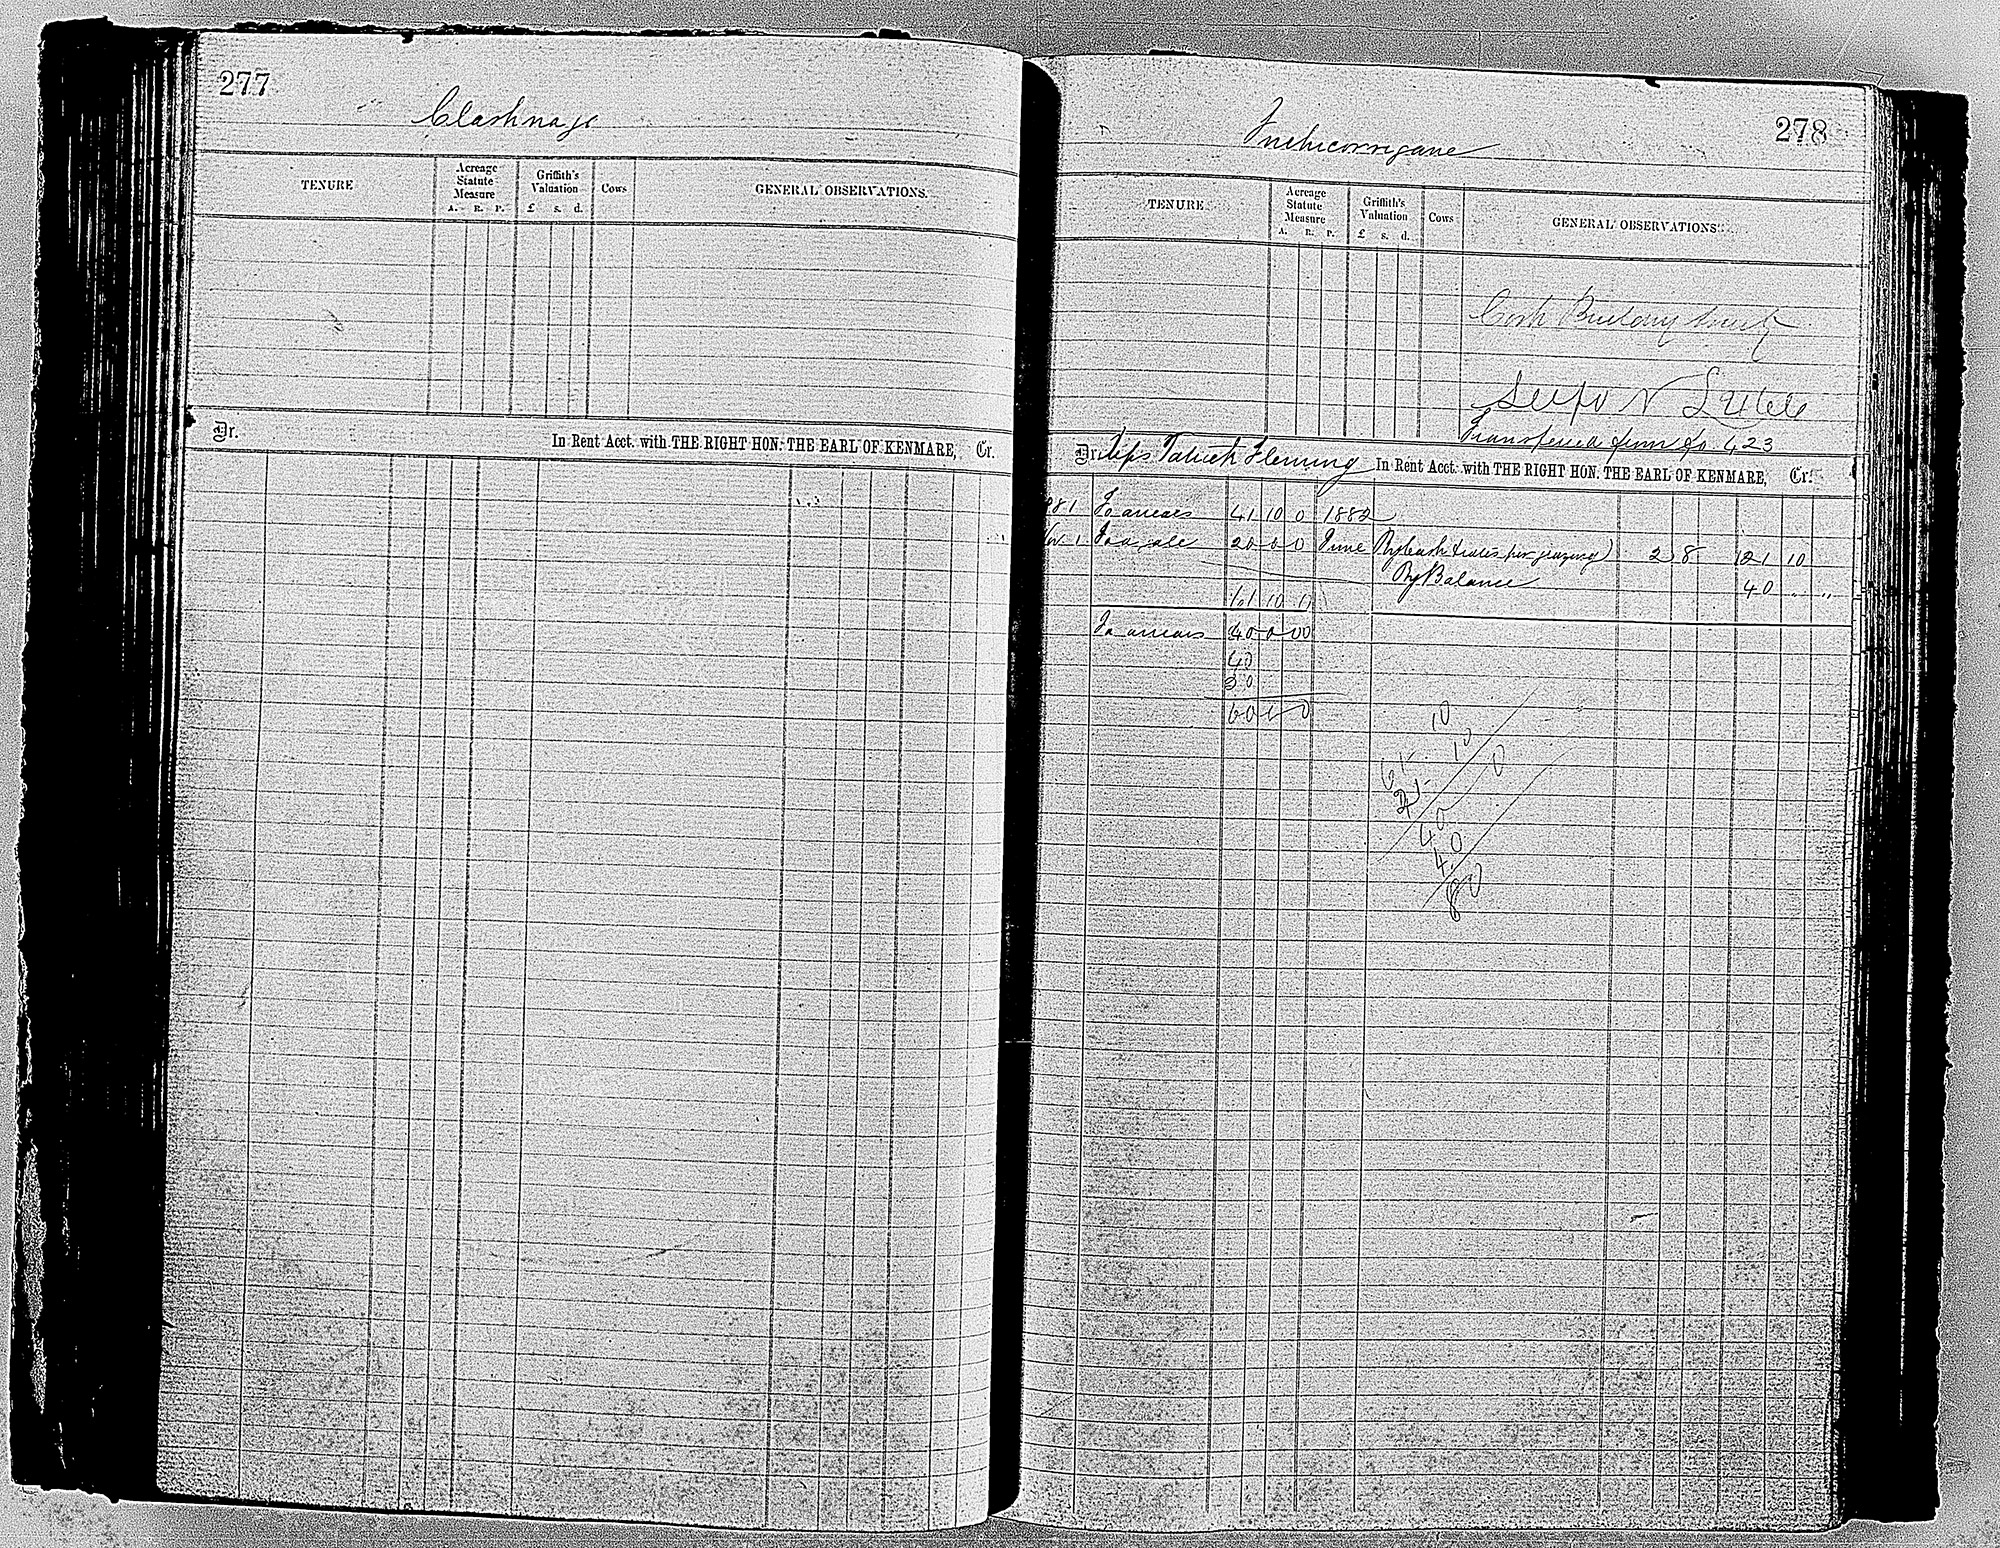 277
Clashnagr
TENURE
Acreage Statute Measure
A. R. P.
Griffith's Valuation
£ s. d.
Cows
GENERAL OBSERVATIONS.
Dr.
In Rent Acct. with THE RIGHT HON. THE EARL OF KENMARE,
Cr.
278
Inchicorrigane
TENURE
Acreage Statute Measure
A. R. P.
Griffith's Valuation
£ s. d.
Cows
GENERAL OBSERVATIONS.
Transferred from fo 423
Dr. Reps Patrick Fleming In Rent Acct. with THE RIGHT HON. THE EARL OF KENMARE, Cr.
881 To arrears 41 10 0 1882
Nov 1 To a gale 20 0 0 June By Cash 2 8 21 10
By Balance 40 " "
61 10 0
To arrears 40 0 0
40
20
60 0 0
61 - 10
21 - 10
40 0
40
80